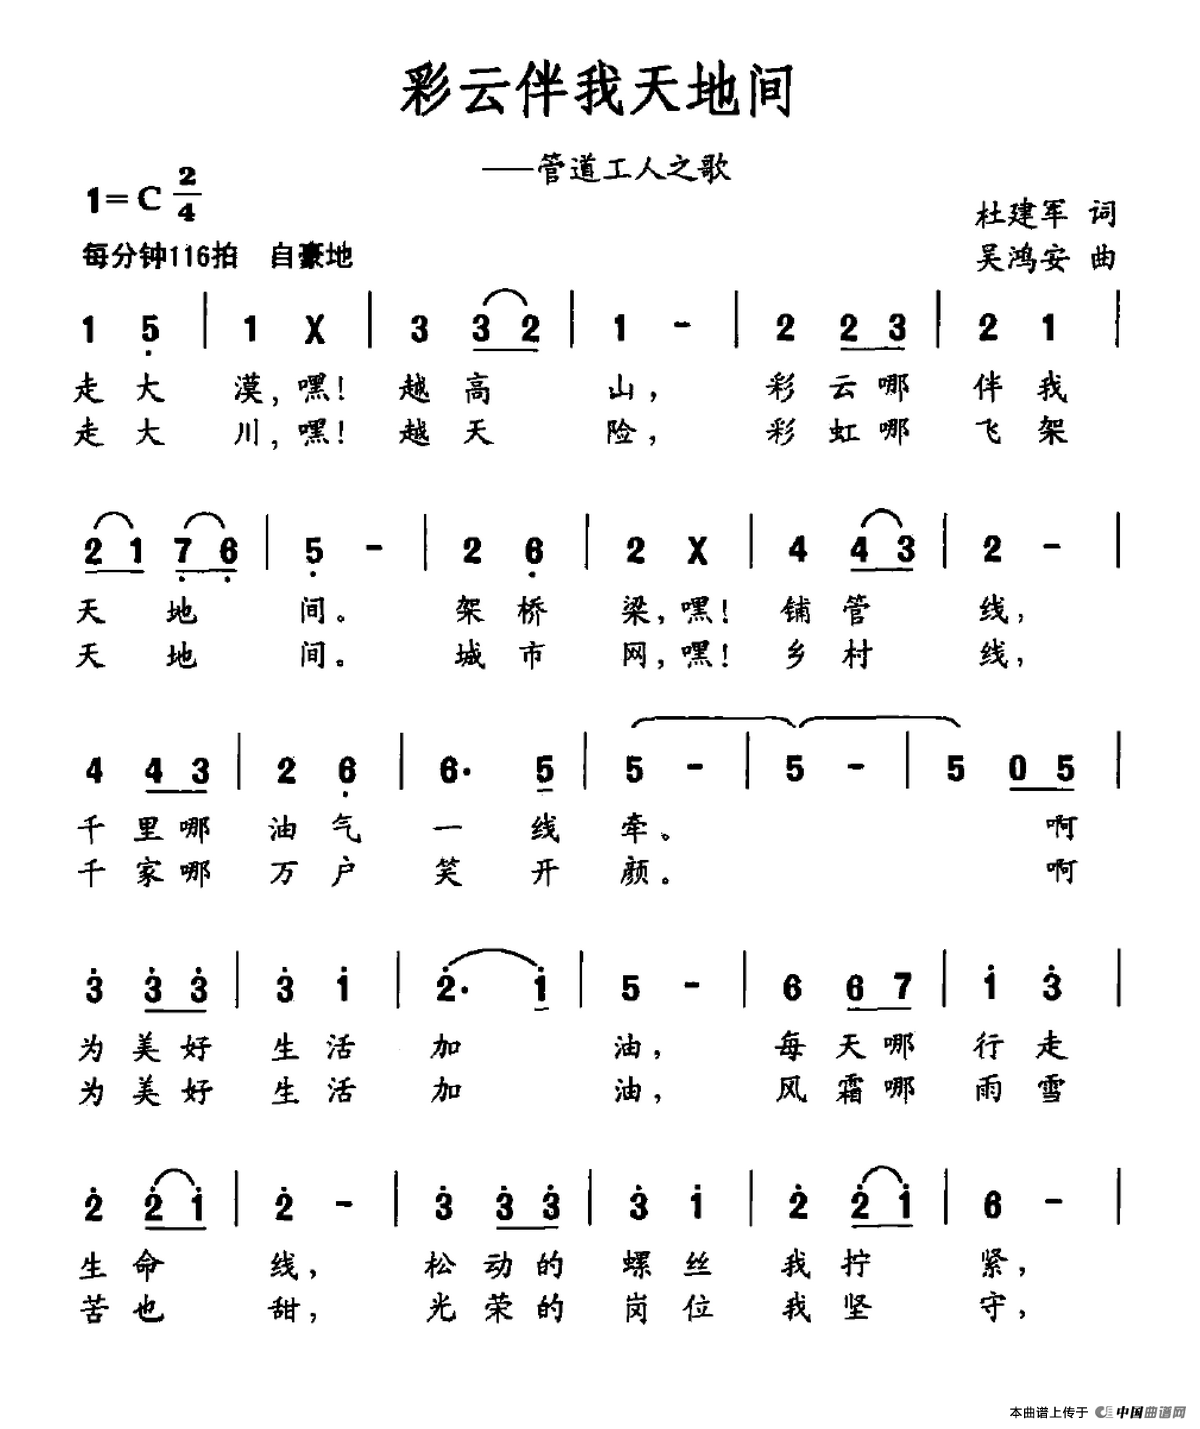 彩云伴我天地间
——管道工人之歌
1=C 2/4
杜建军 词
每分钟116拍 自豪地
吴鸿安 曲
1 5̣ | 1 X | 3 3 2 | 1 - | 2 2 3 | 2 1 |
走大漠,嘿!越高山,彩云哪伴我
走大川,嘿!越天险,彩虹哪飞架
2 1 7̣ 6̣ | 5̣ - | 2 6̣ | 2 X | 4 4 3 | 2 - |
天地间。架桥梁,嘿!铺管线,
天地间。城市网,嘿!乡村线,
4 4 3 | 2 6̣ | 6· 5 | 5 - | 5 - | 5 0 5 |
千里哪油气一线牵。啊
千家哪万户笑开颜。啊
3̇ 3̇ 3̇ | 3̇ 1̇ | 2̇· 1̇ | 5 - | 6 6 7 | 1̇ 3̇ |
为美好生活加油,每天哪行走
为美好生活加油,风霜哪雨雪
2̇ 2̇ 1̇ | 2̇ - | 3̇ 3̇ 3̇ | 3̇ 1̇ | 2̇ 2̇ 1̇ | 6 - |
生命线,松动的螺丝我拧紧,
苦也甜,光荣的岗位我坚守,
本曲谱上传于 中国曲谱网